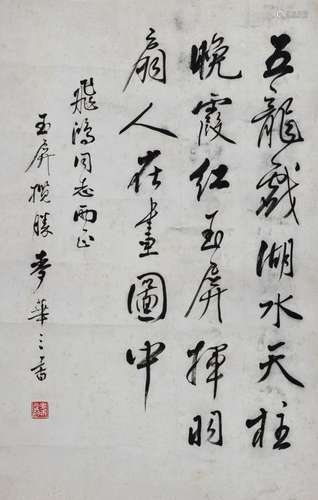 五龍戲湖水天柱
晚霞紅玉屏揮明
扇人在畫圖中
飛鴻同志兩正
玉屏攬勝 麥華三書